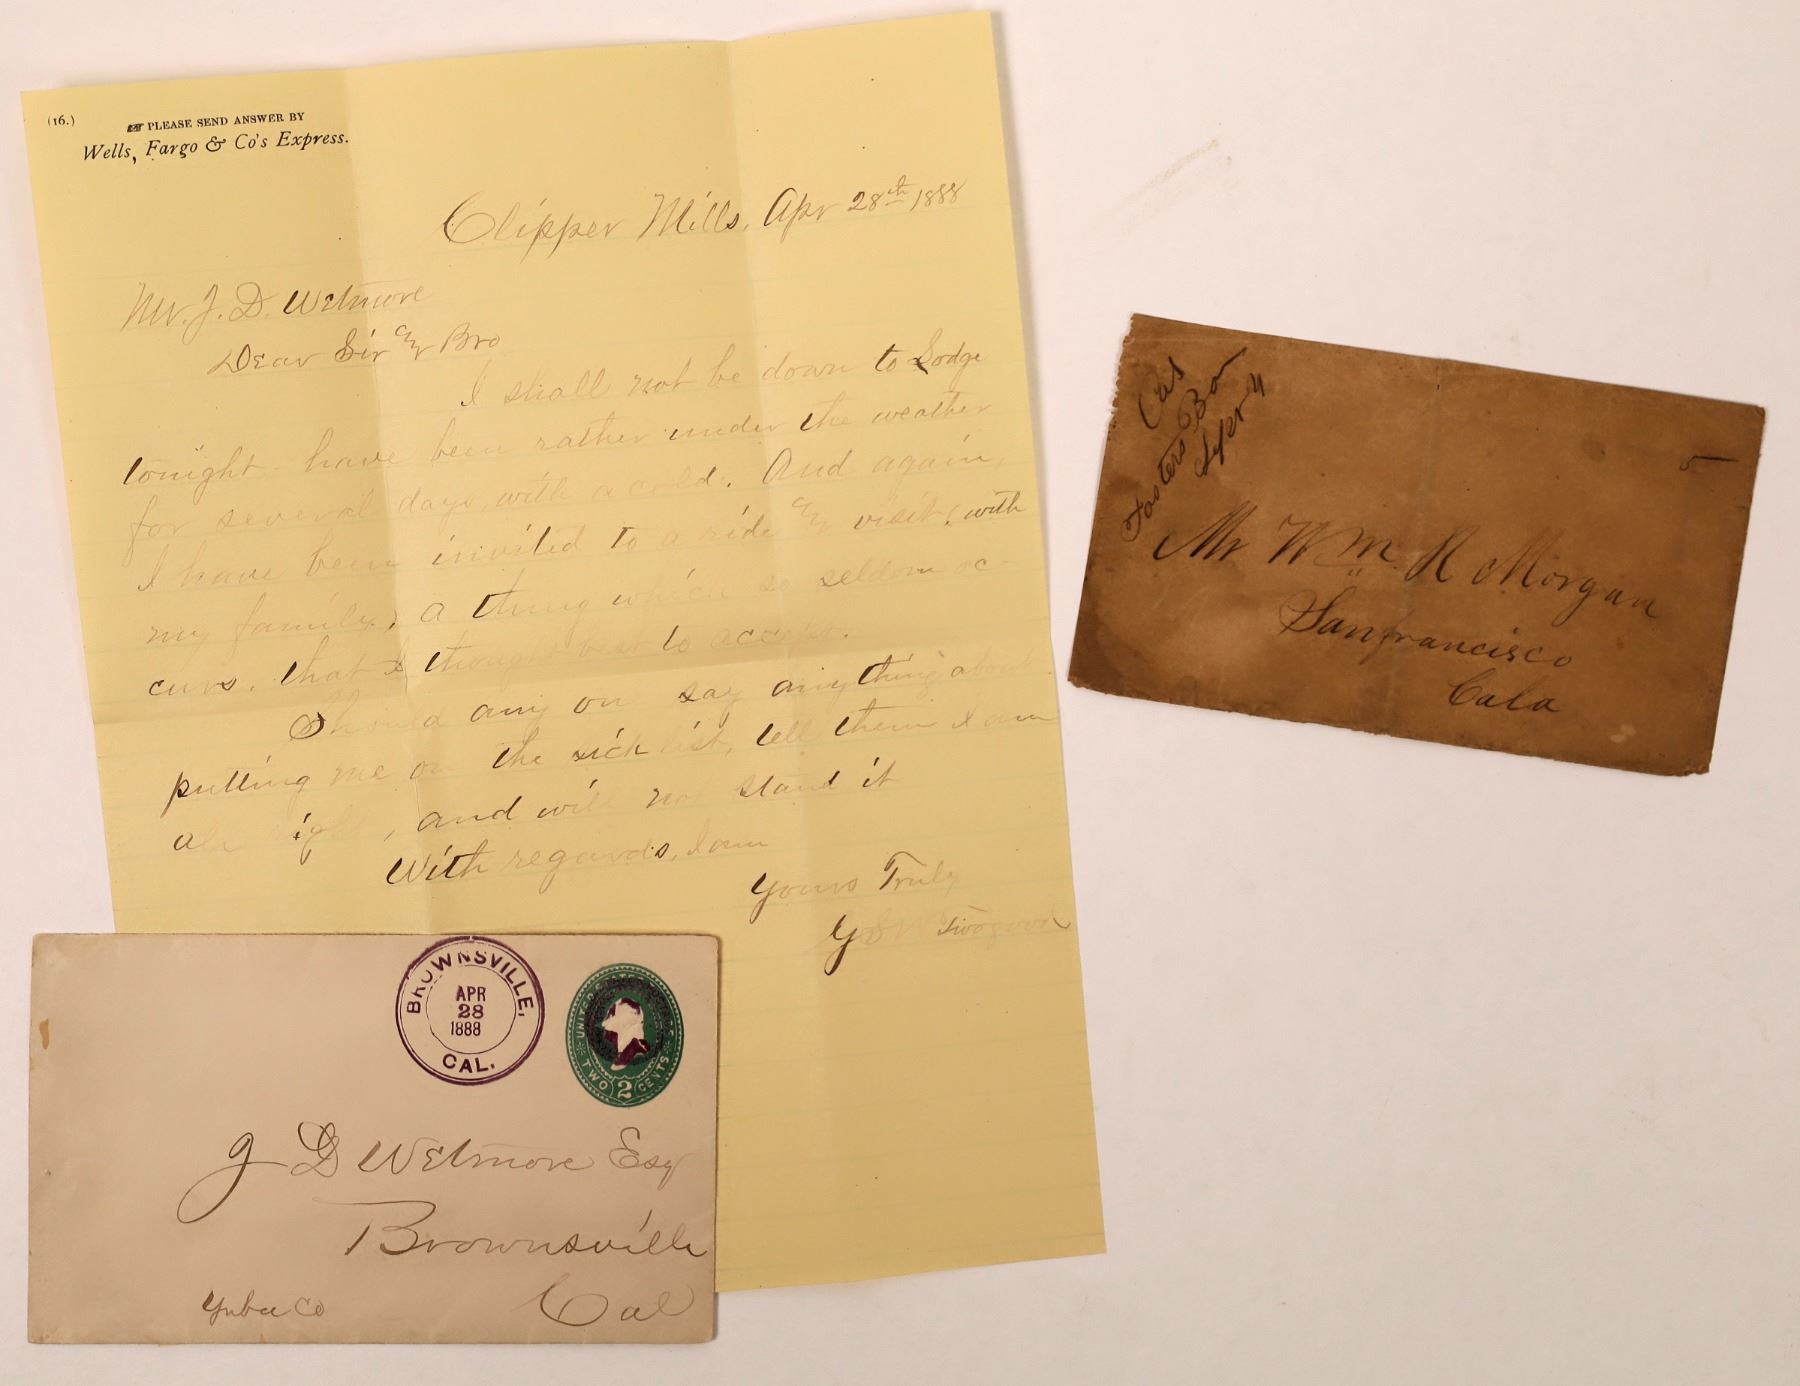 (16.)
☞ PLEASE SEND ANSWER BY
Wells, Fargo & Co's Express.
Clipper Mills, Apr 28th 1888
Mr. J. D. Wetmore
Dear Sir & Bro
I shall not be down to Lodge
tonight have been rather under the weather
for several days, with a cold. And again,
I have been invited to a ride & visit, with
my family, a thing which so seldom oc-
curs, that I thought best to accept.
Should any one say anything about
putting me on the sick list, tell them I am
all right, and will not stand it
With regards, I am
Yours Truly
G S W Twogood
BROWNSVILLE,
APR
28
1888
CAL.
UNITED STATES POSTAGE
TWO 2 CENTS
J D Wetmore Esq
Brownsville
Yuba Co
Cal
Cal
Fosters Bar
4
5
Mr Wm R Morgan
Sanfrancisco
Cala